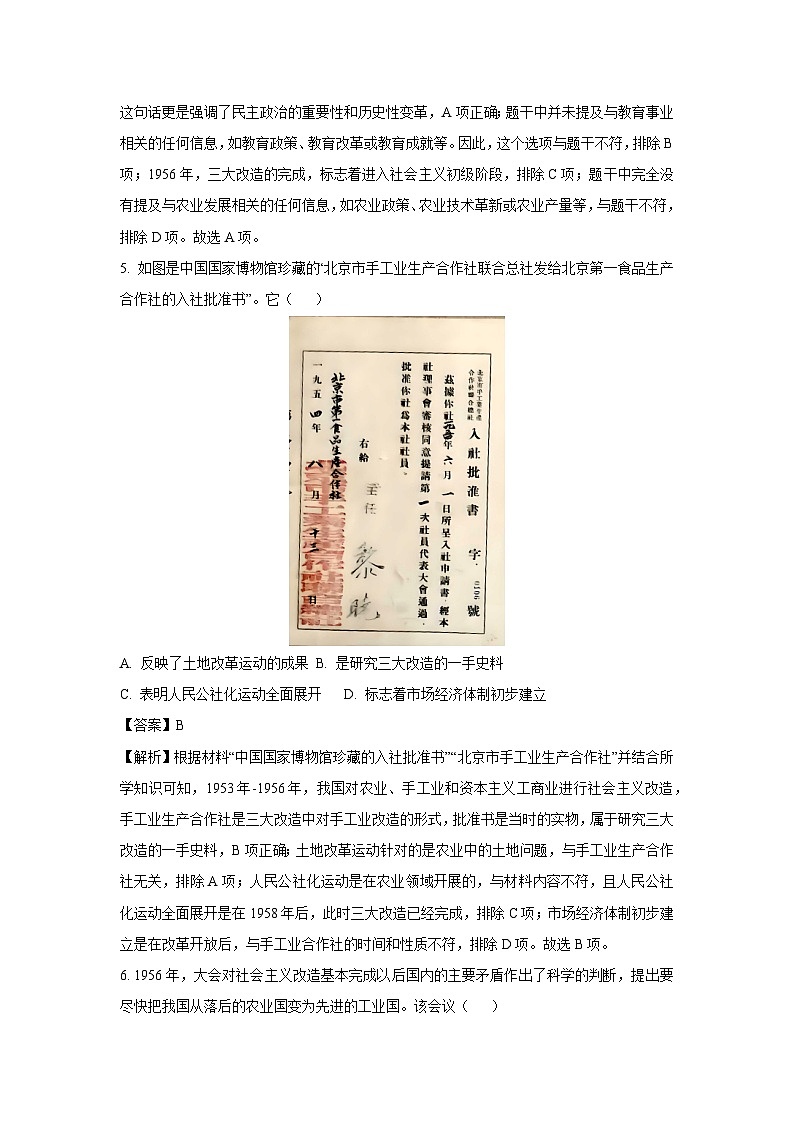 这句话更是强调了民主政治的重要性和历史性变革，A 项正确；题干中并未提及与教育事业
相关的任何信息，如教育政策、教育改革或教育成就等。因此，这个选项与题干不符，排除 B
项；1956 年，三大改造的完成，标志着进入社会主义初级阶段，排除 C 项；题干中完全没
有提及与农业发展相关的任何信息，如农业政策、农业技术革新或农业产量等，与题干不符，
排除 D 项。故选 A 项。
5. 如图是中国国家博物馆珍藏的“北京市手工业生产合作社联合总社发给北京第一食品生产
合作社的入社批准书”。它（　　）
北京市手工业生產
合作社聯合總社
入社批准書　字．0106號
茲據你社年六月一日所呈入社申請書．經本
社理事會審核同意提請第一次社員代表大會通過．
批准你社為本社社員、
右給
主任 黎曉
北京市第一食品生產合作社
一九五四年八月十二日
A. 反映了土地改革运动的成果 B. 是研究三大改造的一手史料
C. 表明人民公社化运动全面展开 D. 标志着市场经济体制初步建立
【答案】B
【解析】根据材料“中国国家博物馆珍藏的入社批准书”“北京市手工业生产合作社”并结合所
学知识可知，1953 年-1956 年，我国对农业、手工业和资本主义工商业进行社会主义改造，
手工业生产合作社是三大改造中对手工业改造的形式，批准书是当时的实物，属于研究三大
改造的一手史料，B 项正确；土地改革运动针对的是农业中的土地问题，与手工业生产合作
社无关，排除 A 项；人民公社化运动是在农业领域开展的，与材料内容不符，且人民公社
化运动全面展开是在 1958 年后，此时三大改造已经完成，排除 C 项；市场经济体制初步建
立是在改革开放后，与手工业合作社的时间和性质不符，排除 D 项。故选 B 项。
6. 1956 年，大会对社会主义改造基本完成以后国内的主要矛盾作出了科学的判断，提出要
尽快把我国从落后的农业国变为先进的工业国。该会议（　　）